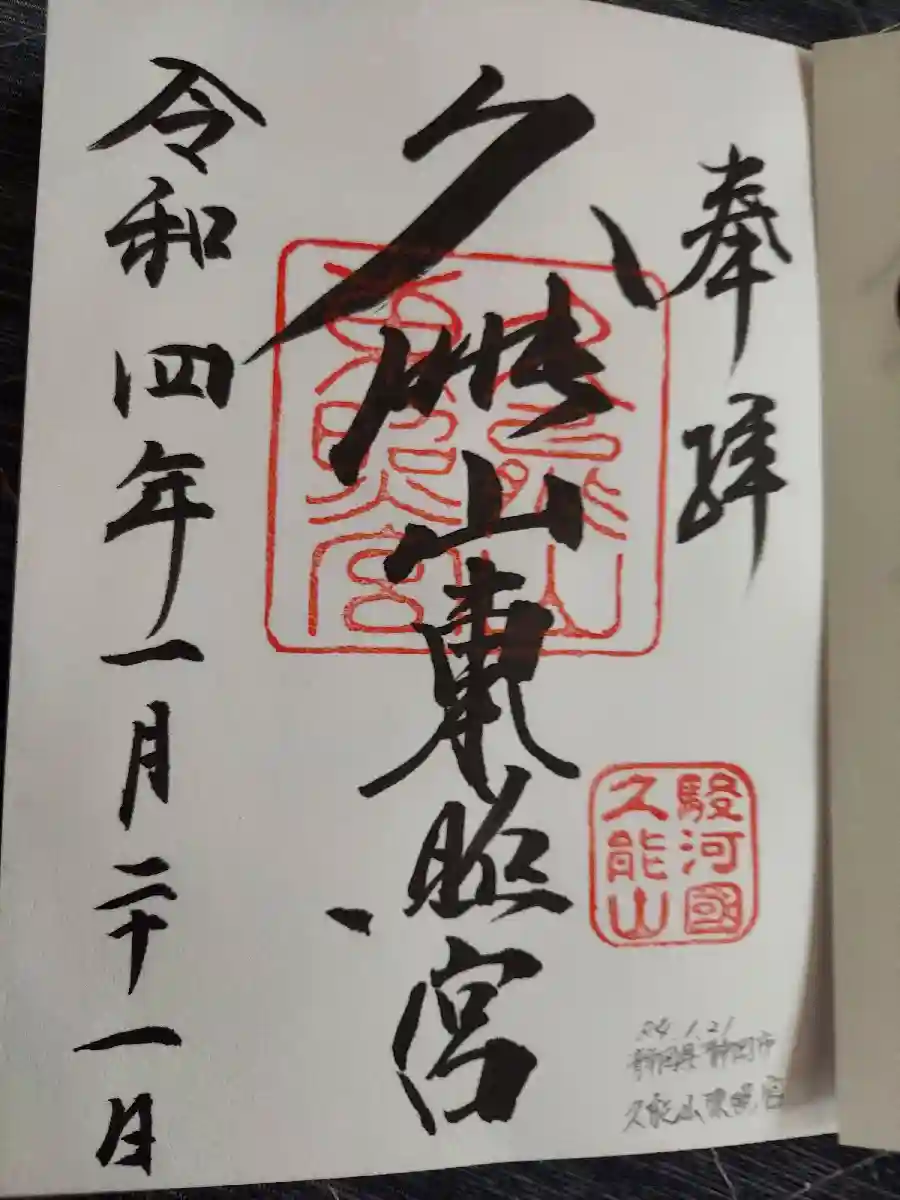 奉拝
久能山東照宮
令和四年一月二十一日
駿河國
久能山
R4.1.21
静岡県静岡市
久能山東照宮